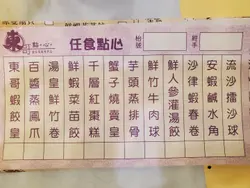 東哥點心
任食點心
枱號
經手
流沙擂沙球
安蝦鹹水角
沙律蝦春卷
鮮人參灌湯餃
鮮竹牛肉球
芋頭蒸排骨
蟹子燒賣皇
千層紅棗糕
鮮蝦菜苗餃
湯鮮竹卷
百醬蒸鳳爪
東哥蝦餃皇